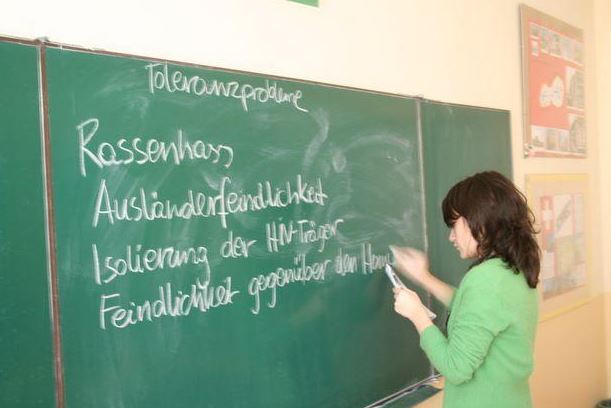 Toleranzprobleme
Rassenhass
Ausländerfeindlichkeit
Isolierung der HIV-Träger
Feindlichket gegenüber den Homo